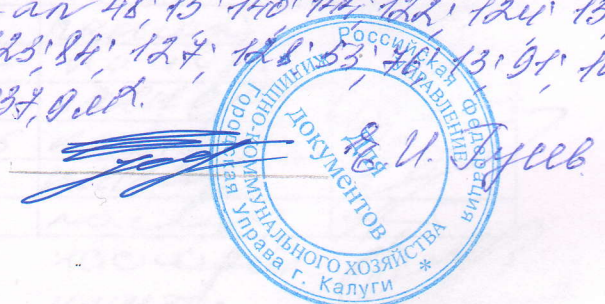 48; 15; 140; 144; 122; 124; 13
23; 84; 127; 128; 53; 76; 13; 91; 10
37,9 м2.
И. Гусев
Российская Федерация
Городская Управа г. Калуги *
УПРАВЛЕНИЕ
ЖИЛИЩНО-КОММУНАЛЬНОГО ХОЗЯЙСТВА
Для
документов